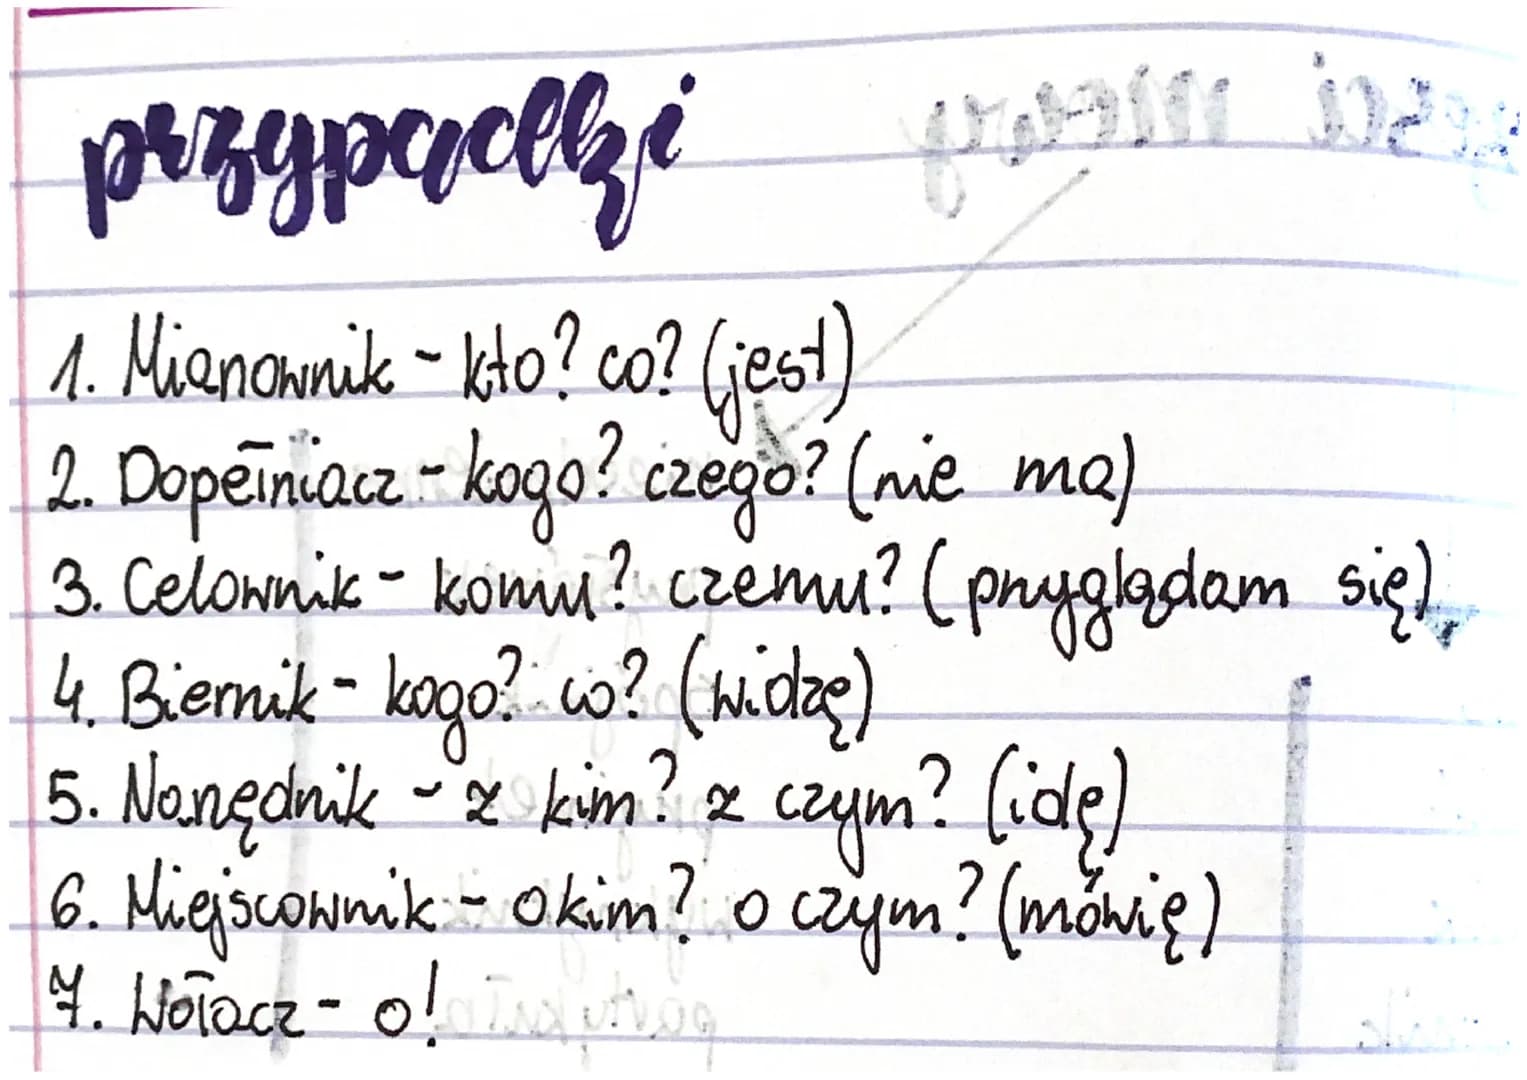 przypadki
1. Mianownik - kto? co? (jest)
2. Dopełniacz - kogo? czego? (nie ma)
3. Celownik - komu? czemu? (przyglądam się)
4. Biernik - kogo? co? (widzę)
5. Narzędnik - z kim? z czym? (idę)
6. Miejscownik - o kim? o czym? (mówię)
7. Wołacz - o!